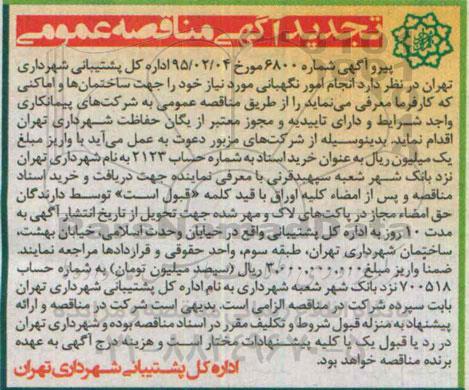 تجدید آگهی مناقصه عمومی
پیرو آگهی شماره ۶۸۰۰ مورخ ۹۵/۰۲/۰۴ اداره کل پشتیبانی شهرداری
تهران در نظر دارد انجام امور نگهبانی مورد نیاز خود را جهت ساختمان‌ها و اماکنی
که کارفرما معرفی می‌نماید را از طریق مناقصه عمومی به شرکت‌های پیمانکاری
واجد شرایط و دارای تاییدیه و مجوز معتبر از یگان حفاظت شهرداری تهران
اقدام نماید. بدینوسیله از شرکت‌های مزبور دعوت به عمل می‌آید با واریز مبلغ
یک میلیون ریال به عنوان خرید اسناد به شماره حساب ۲۱۲۳ به نام شهرداری تهران
نزد بانک شهر شعبه سپهبدقرنی با معرفی نماینده جهت دریافت و خرید اسناد
مناقصه و پس از امضاء کلیه اوراق با قید کلمه «قبول است» توسط دارندگان
حق امضاء مجاز در پاکت‌های لاک و مهر شده جهت تحویل از تاریخ انتشار آگهی به
مدت ۱۰ روز به اداره کل پشتیبانی واقع در خیابان وحدت اسلامی، خیابان بهشت،
ساختمان شهرداری تهران، طبقه سوم، واحد حقوقی و قراردادها مراجعه نمایند
ضمنا واریز مبلغ ۳،۰۰۰،۰۰۰،۰۰۰ ریال (سیصد میلیون تومان) به شماره حساب
۷۰۰۵۱۸ نزد بانک شهر شعبه شهرداری به نام اداره کل پشتیبانی شهرداری تهران
بابت سپرده شرکت در مناقصه الزامی است. بدیهی است شرکت در مناقصه و ارائه
پیشنهاد به منزله قبول شروط و تکلیف مقرر در اسناد مناقصه بوده و شهرداری تهران
در رد یا قبول یک یا کلیه پیشنهادات مختار است و هزینه درج آگهی به عهده
برنده مناقصه خواهد بود.
اداره کل پشتیبانی شهرداری تهران